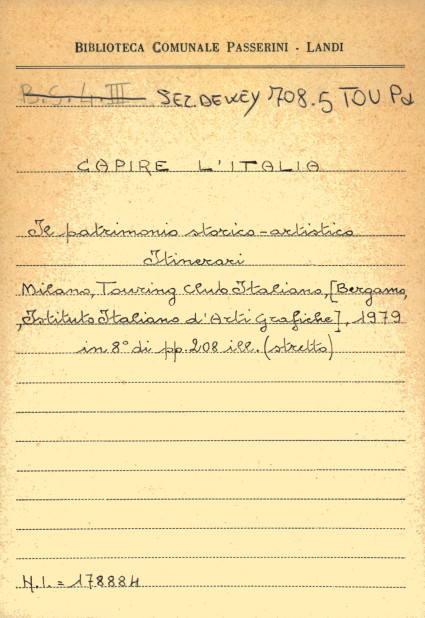 BIBLIOTECA COMUNALE PASSERINI - LANDI
B.S.4.III SEZ.DEWEY 708.5 TOU Pa
CAPIRE L'ITALIA
Il patrimonio storico-artistico
Itinerari
Milano, Touring Club Italiano, [Bergamo,
,Istituto Italiano d'Arti Grafiche], 1979
in 8° di pp. 208 ill. (stretto)
N.I. = 178884